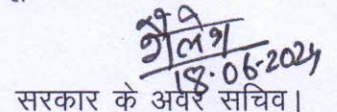 शैलेश
18.06.2024
सरकार के अवर सचिव।